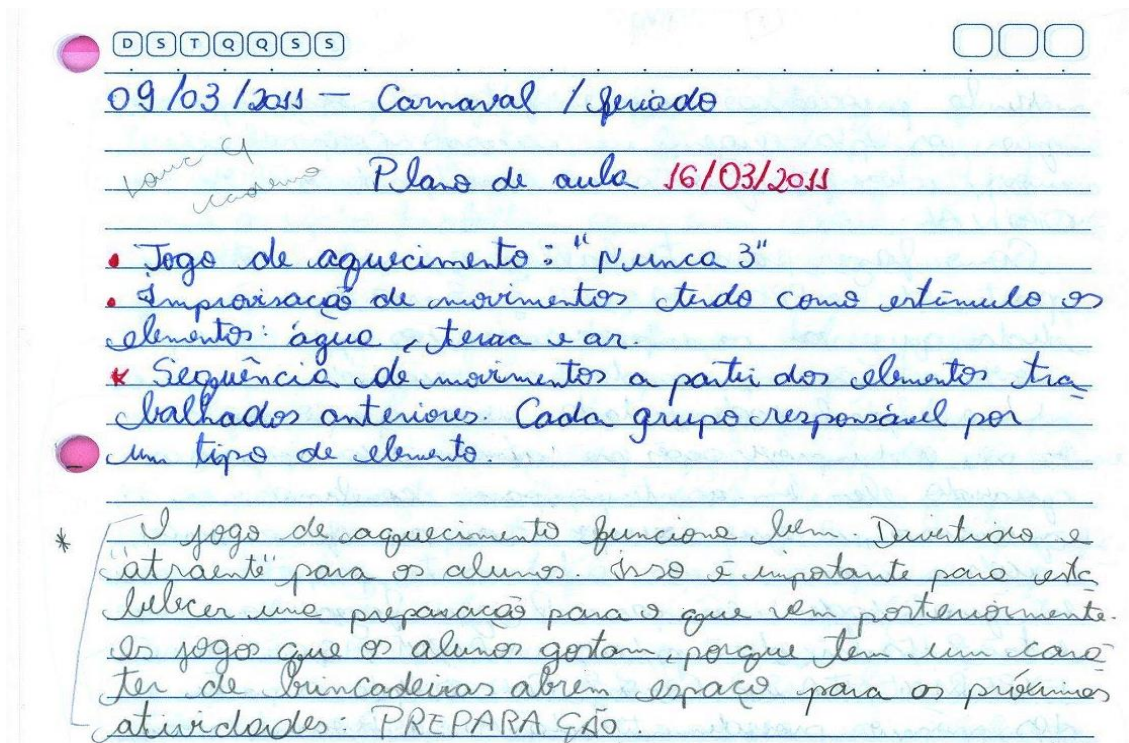 D S T Q Q S S
09/03/2011 — Carnaval / feriado
Plano de aula 16/03/2011
• Jogo de aquecimento: "Nunca 3"
• Improvisação de movimentos tendo como estímulo os
elementos: água, terra e ar.
* Sequência de movimentos a partir dos elementos tra
balhados anteriores. Cada grupo responsável por
um tipo de elemento.
* O jogo de aquecimento funciona bem. Divertido e
"atraente" para os alunos. Isso é importante para esta
belecer uma preparação para o que vem posteriormente.
Os jogos que os alunos gostam, porque tem um cará
ter de brincadeiras abrem espaço para as próximas
atividades: PREPARAÇÃO.